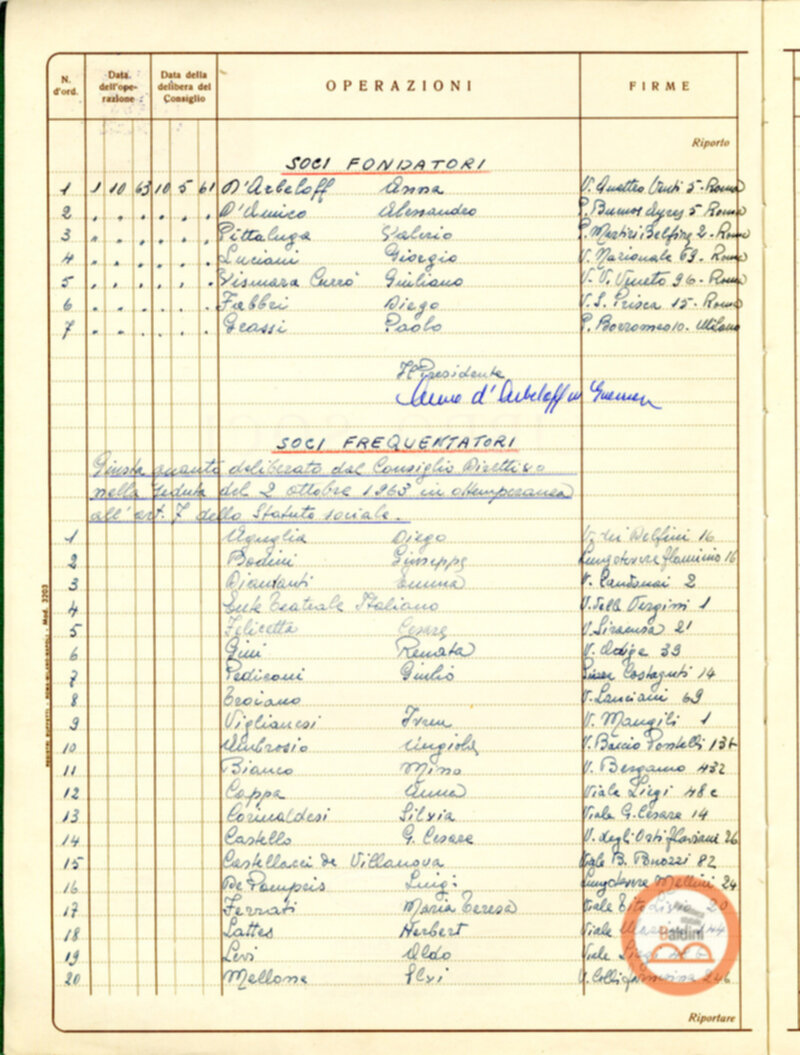 N. d'ord. Data dell'operazione Data della delibera del Consiglio OPERAZIONI FIRME
Riporto
SOCI FONDATORI
1 1 10 63 10 5 61 D'Arbeloff Anna V. Quattro Venti 5 - Roma
2 " " " " " " D'Amico Alessandro P. Buenos Ayres 5 Roma
3 " " " " " " Pittaluga Valerio P. Martiri Belfiore 2 - Roma
4 " " " " " " Luciani Giorgio V. Nazionale 69 - Roma
5 " " " " " " Vismara Currò Giuliano V. V. Veneto 96 - Roma
6 " " " " " " Fabbri Diego V. S. Prisca 15 - Roma
7 " " " " " " Grassi Paolo P. Borromeo 10 - Milano
Il Presidente
Anna d'Arbeloff in
SOCI FREQUENTATORI
Giusta quanto deliberato dal Consiglio Direttivo
nella seduta del 2 ottobre 1963 in ottemperanza
all'art. 7 dello Statuto sociale.
1 Aguglia Diego V. dei Delfini 16
2 Bodini Giuseppe Lungotevere Flaminio 16
3 Diamanti Emma V. 2
4 Ente Teatrale Italiano V. delle Vergini 1
5 Felicetta Cesare V. Siracusa 21
6 Gini Renata V. Adige 39
7 Pediconi Giulio Piazza Costaguti 14
8 Troiano V. Lanciani 69
9 Viglianesi Iren V. Mangili 1
10 Ambrosio Angiola V. Baccio Pontelli
11 Bianco Mino V. Bergamo 43
12 Cappa Anna Viale Liegi 48 c
13 Corinaldesi Silvia Viale G. Cesare 14
14 Castello G. Cesare V. degli Orti flaviani 26
15 Castellacci de Villanova Viale B. Buozzi 82
16 De Pompeis Luigi Lungotevere Mellini 24
17 Ferrati Maria Teresa Viale Tito Livio 20
18 Lattes Herbert Viale
19 Levi Aldo Viale
20 Mellone V. Colli farnesina 246
Baldini
Riportare
REGISTRI BUFFETTI - ROMA-MILANO-NAPOLI - Mod. 3203